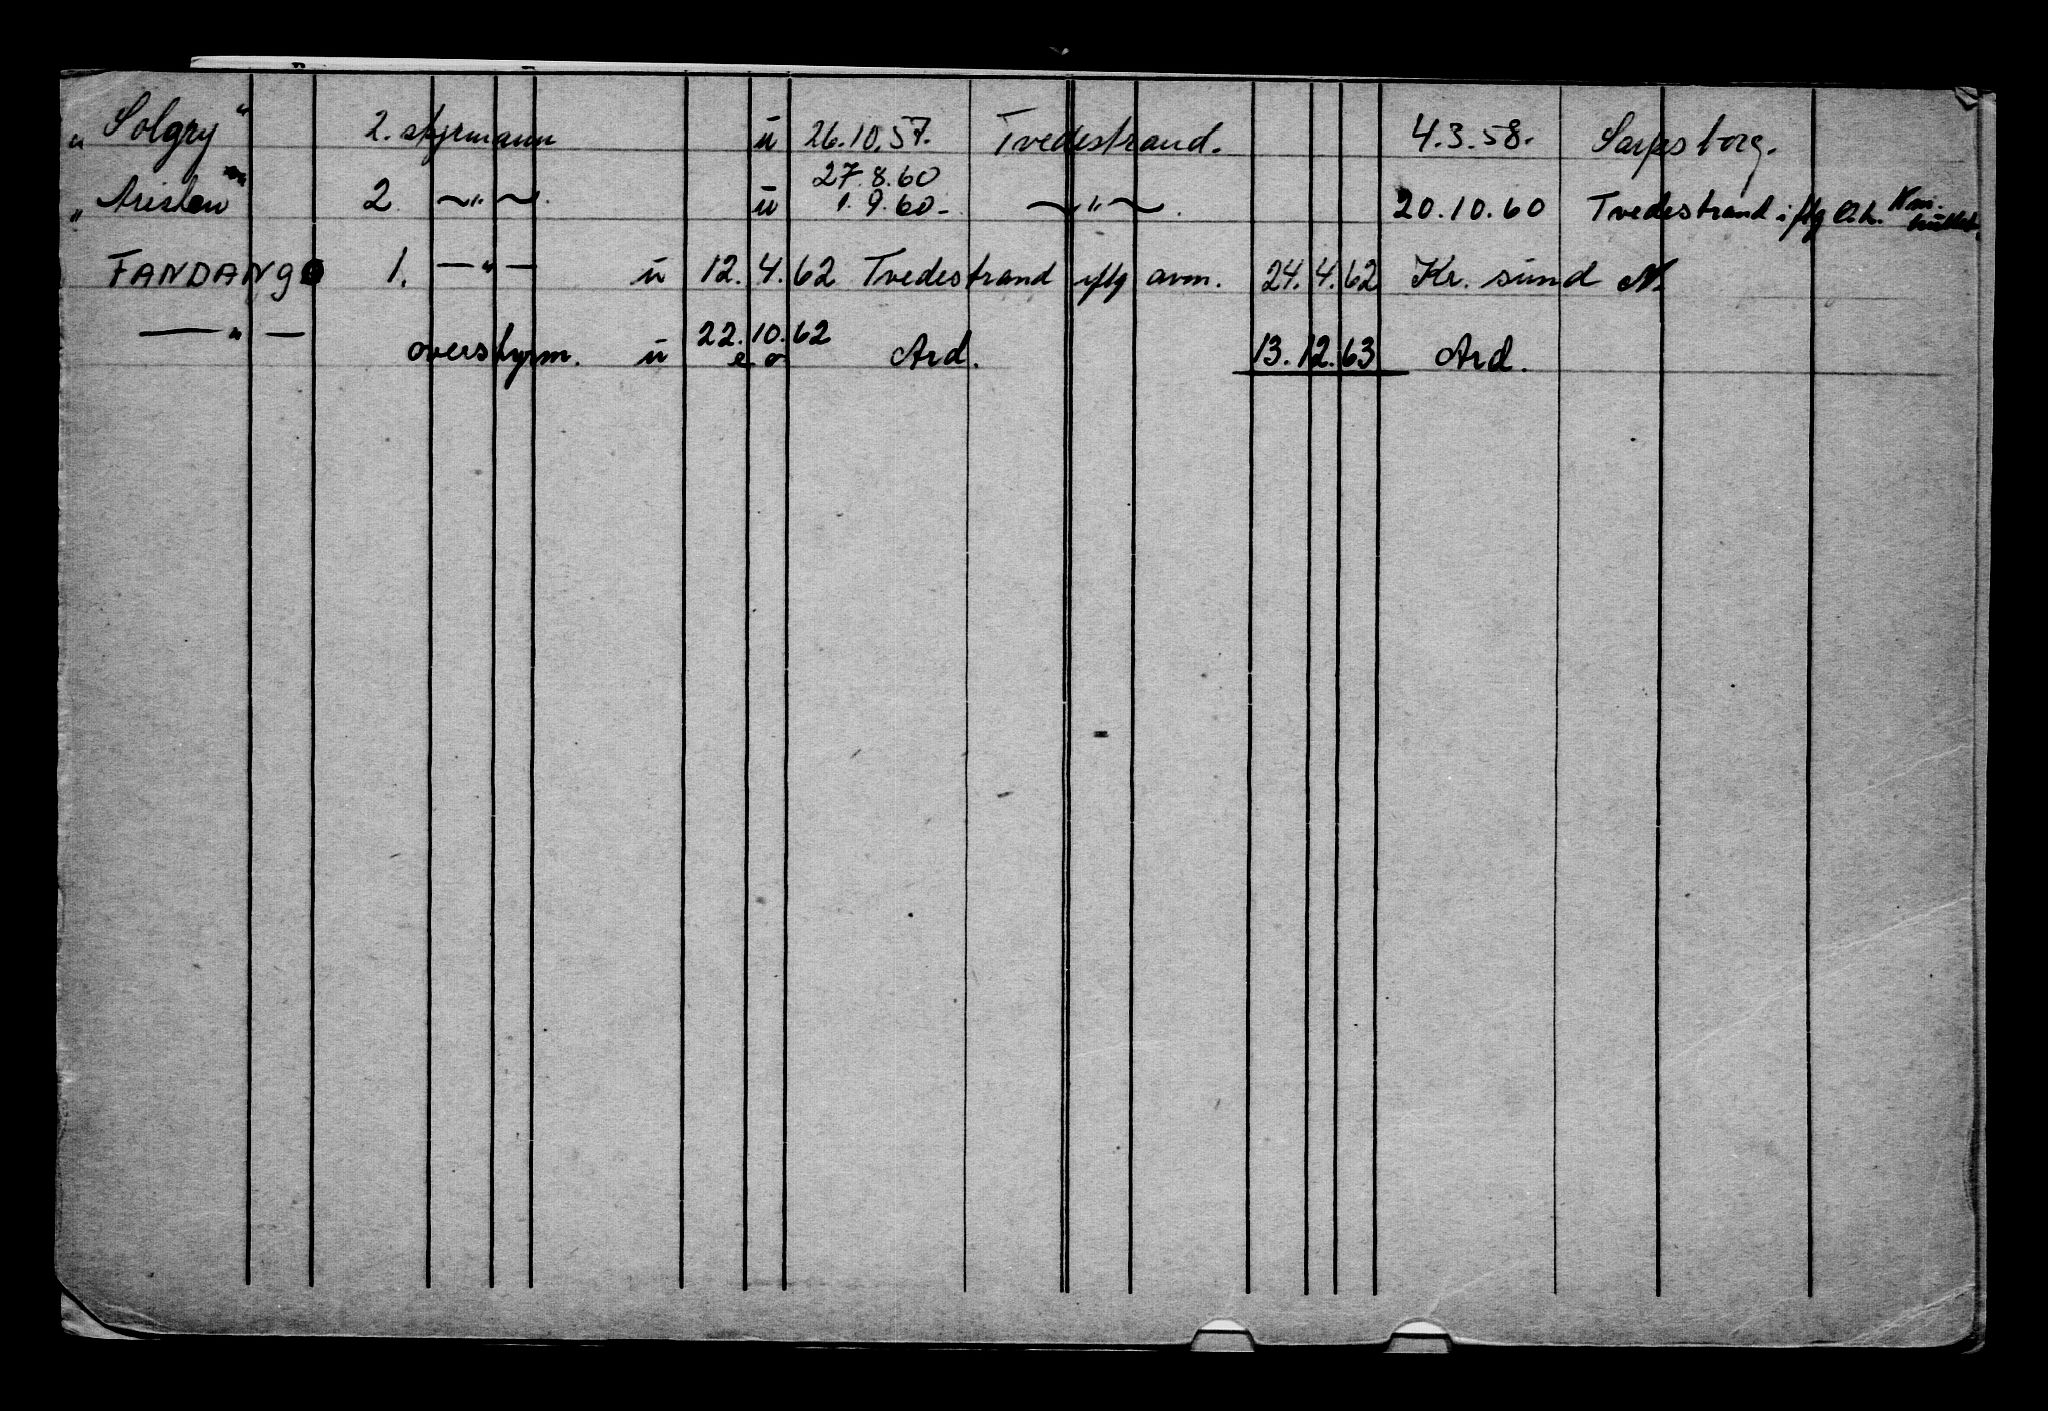 „Solgry“ 2. styrmann ü 26.10.57. Tvedestrand. 4.3.58. Sarpsborg.
27.8.60
2 ~"~. ü 1.9.60- ~"~. 20.10.60 Tvedestrand iflg
FANDANGO 1. —"— ü 12.4.62 Tvedestrand iflg avm. 24.4.62 Kr. sünd N.
22.10.62
—"— overstyrm. ü e o Ard. 13.12.63 Ard.